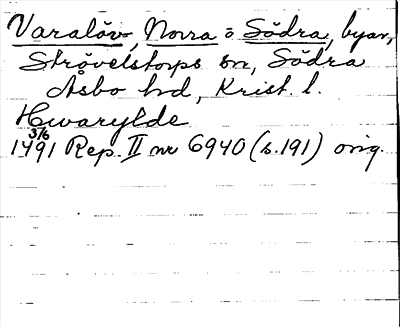 Varalöv, Norra o Södra, byar,
Strövelstorps sn, Södra
Åsbo hd, Krist. l.
Hwarylde
3/6
1491 Rep. II nr 6940 (s. 191) orig.